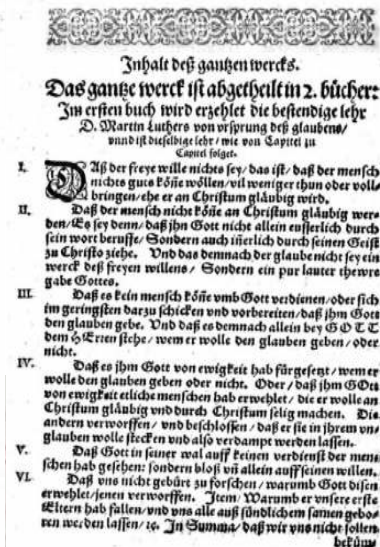 Inhalt deß gantzen wercks.
Das gantze werck ist abgetheilt in 2. bücher:
Im ersten buch wird erzehlet die bestendige lehr
D. Martin Luthers von vrsprung deß glaubens/
vnnd ist dieselbige lehr / wie von Capitel zu
Capitel folget.
I. Daß der freye wille nichts sey / das ist / daß der mensch
nichts guts köñe wöllen / vil weniger thun oder voll-
bringen / ehe er an Christum gläubig wird.
II. Daß der mensch nicht köñe an Christum gläubig wer-
den / Es sey denn / daß jhn Gott nicht allein eusserlich durch
sein wort beruffe / Sondern auch iñerlich durch seinen Geist
zu Christo ziehe. Vnd das demnach der glaube nicht sey ein
werck deß freyen willens / Sondern ein pur lauter thewre
gabe Gottes.
III. Daß es kein mensch köñe vmb Gott verdienen / oder sich
im geringsten darzu schicken vnd vorbereiten / daß jhm Gott
den glauben gebe. Vnd daß es demnach allein bey GOTT
dem HErten stehe / wem er wolle den glauben geben / oder
nicht.
IV. Daß es jhm Gott von ewigkeit hab fürgesetzt / wem er
wolle den glauben geben oder nicht. Oder / daß jhm GOtt
von ewigkeit etliche menschen hab erwehlet / die er wolle an
Christum gläubig vnd durch Christum selig machen. Die
andern verworffen / vnd beschlossen / daß er sie in jhrem vn-
glauben wolle stecken vnd also verdampt werden lassen.
V. Daß Gott in seiner wal auff keinen verdienst der men-
schen hab gesehen: sondern bloß vñ allein auff seinen willen.
VI. Daß vns nicht gebürt zu forschen / warumb Gott disen
erwehlet / jenen verworffen. Item / Warumb er vnsere erste
Eltern hab fallen / vnd vns alle auß sündlichem samen gebo-
ren werden lassen / ꝛc. In Summa / daß wir vns nicht sollen
beküm-